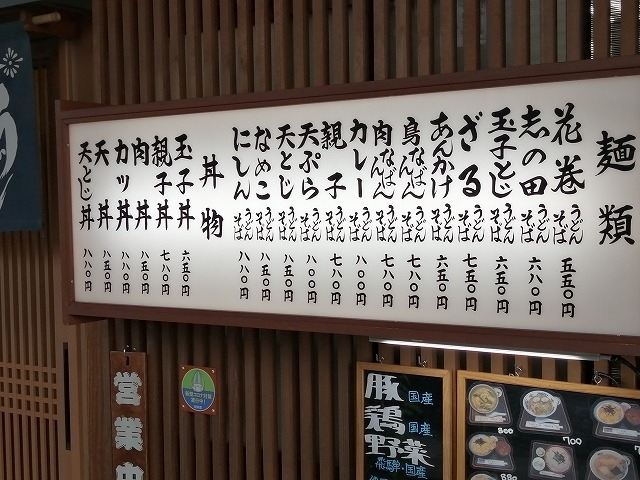 麺類
花巻 うどん そば 五五〇円
志の田 うどん そば 六八〇円
玉子とじ うどん そば 六五〇円
ざる うどん そば 七五〇円
あんかけ うどん そば 六五〇円
鳥なんばん うどん そば 七八〇円
肉なんばん うどん そば 七八〇円
カレー うどん そば 八〇〇円
親子 うどん そば 七八〇円
天ぷら うどん そば 八〇〇円
天とじ うどん そば 八五〇円
なめこ うどん そば 八五〇円
にしん うどん そば 八八〇円
丼物
玉子丼 六五〇円
親子丼 七八〇円
肉丼 八五〇円
カツ丼 八八〇円
天丼 八五〇円
天とじ丼 八八〇円
営業中
豚 国産
鶏 国産
野菜
飛騨・国産
800
700
880